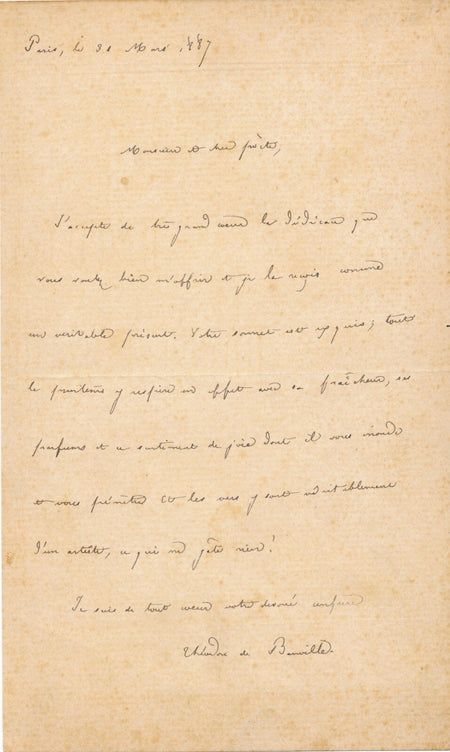 Paris, le 31 Mars 1887
Monsieur et cher poète,
J'accepte de très grand cœur la Dédicace que
vous voulez bien m'offrir et je la reçois comme
un véritable présent. Votre sonnet est exquis; tout
le printemps y respire en effet avec sa fraîcheur, ses
parfums et ce sentiment de joie dont il vous inonde
et vous pénètre. Et les vers y sont véritablement
d'un artiste, ce qui ne gâte rien!
Je suis de tout cœur votre dévoué confrère
Théodore de Banville.